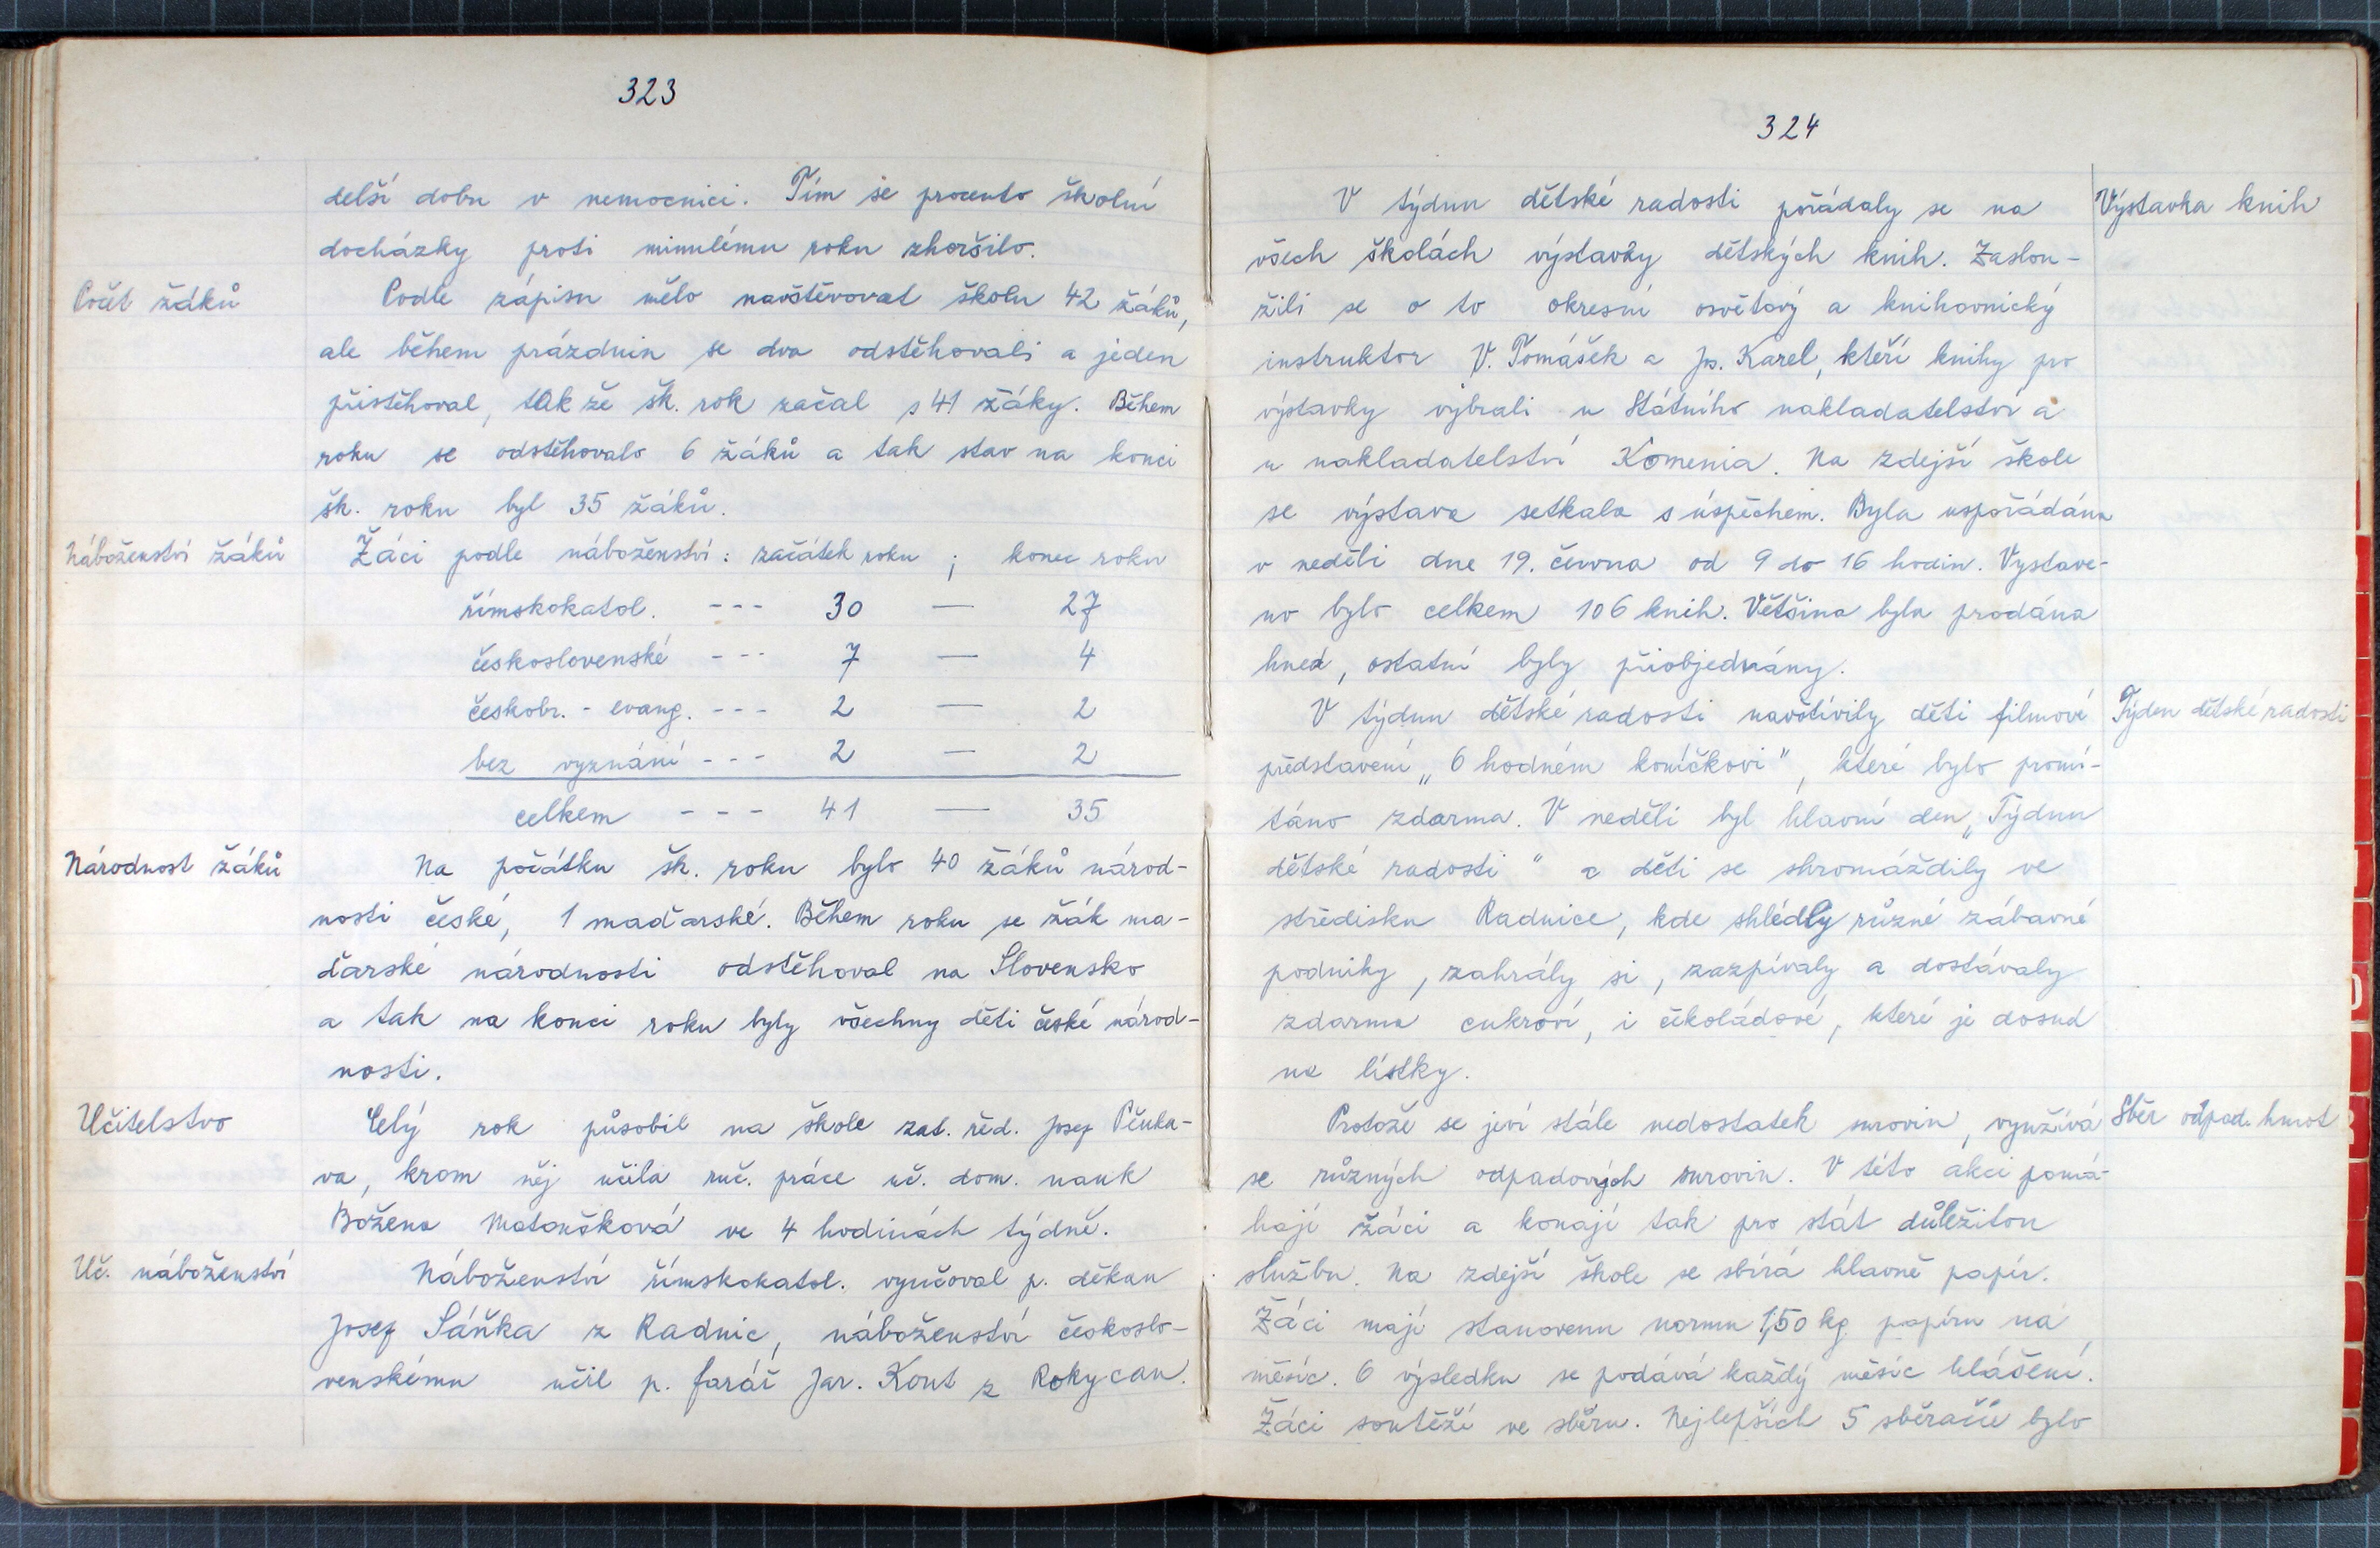 323
delší dobu v nemocnici. Tím se procento školní
docházky proti minulému roku zhoršilo.
Počet žáků
Podle zápisu mělo navštěvovat školu 42 žáků,
ale během prázdnin se dva odstěhovali a jeden
přistěhoval, takže šk. rok začal s 41 žáky. Během
roku se odstěhovalo 6 žáků a tak stav na konci
šk. roku byl 35 žáků.
Náboženství žáků
Žáci podle náboženství: začátek roku ; konec roku
římskokatol. --- 30 — 27
československé --- 7 — 4
českobr. - evang. --- 2 — 2
bez vyznání --- 2 — 2
celkem --- 41 — 35
Národnost žáků
Na počátku šk. roku bylo 40 žáků národ-
nosti české, 1 maďarské. Během roku se žák ma-
ďarské národnosti odstěhoval na Slovensko
a tak na konci roku byly všechny děti české národ-
nosti.
Učitelstvo
Celý rok působil na škole zat. řed. Josef Pěnka-
va, krom něj učila ruč. práce uč. dom. nauk
Božena Matoušková ve 4 hodinách týdně.
Uč. náboženství
Náboženství římskokatol. vyučoval p. děkan
Josef Sáňka z Radnic, náboženství českoslo-
venskému učil p. farář Jar. Kout z Rokycan.
324
V týdnu dětské radosti pořádaly se na
Výstavka knih
všech školách výstavky dětských knih. Zaslou-
žili se o to okresní osvětový a knihovnický
instruktor V. Tomášek a Js. Karel, kteří knihy pro
výstavky vybrali u Státního nakladatelství a
u nakladatelství Komenia. Na zdejší škole
se výstava setkala s úspěchem. Byla uspořádána
v neděli dne 19. června od 9 do 16 hodin. Vystave-
no bylo celkem 106 knih. Většina byla prodána
hned, ostatní byly přiobjednány.
V týdnu dětské radosti navštívily děti filmové
Týden dětské radosti
představení „O hodném koníčkovi", které bylo promí-
táno zdarma. V neděli byl hlavní den „Týdnu
dětské radosti" a děti se shromáždily ve
středisku Radnice, kde shlédly různé zábavné
podniky, zahrály si, zazpívaly a dostávaly
zdarma cukroví, i čokoládové, které je dosud
na lístky.
Protože se jeví stále nedostatek surovin, využívá
Sběr odpad. hmot
se různých odpadových surovin. V této akci pomá-
hají žáci a konají tak pro stát důležitou
službu. Na zdejší škole se sbírá hlavně papír.
Žáci mají stanovenu normu 1,50 kg papíru na
měsíc. O výsledku se podává každý měsíc hlášení.
Žáci soutěží ve sběru. Nejlepších 5 sběračů bylo